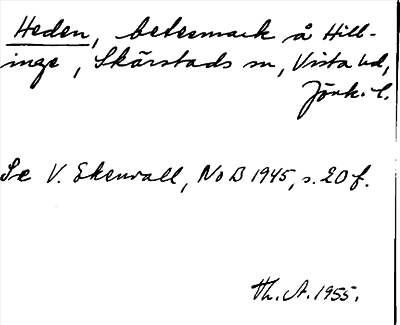 Heden, betesmark å Hill-
inge, Skärstads sn, Vista hd,
Jönk. l.
Se V. Ekenvall, NoB 1945, s. 20 f.
Th. A. 1955.